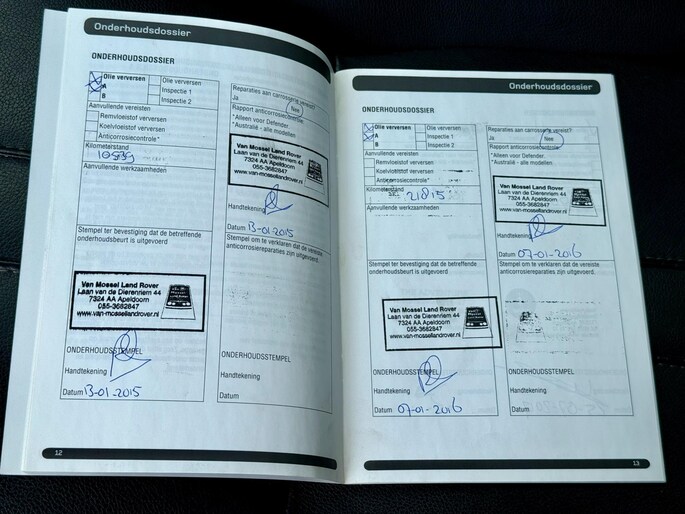 Onderhoudsdossier
ONDERHOUDSDOSSIER
Olie verversen
A
B
Olie verversen
Inspectie 1
Inspectie 2
Aanvullende vereisten
Remvloeistof verversen
Koelvloeistof verversen
Anticorrosiecontrole*
Kilometerstand
Aanvullende werkzaamheden
Stempel ter bevestiging dat de betreffende
onderhoudsbeurt is uitgevoerd
Van Mossel Land Rover
Laan van de Dierenriem 44
7324 AA Apeldoorn
055-3682847
www.van-mossellandrover.nl
ONDERHOUDSSTEMPEL
Handtekening
Datum 13-01-2015
Reparaties aan carrosserie vereist?
Ja
Nee
Rapport anticorrosiecontrole
*Alleen voor Defender.
*Australië - alle modellen
Van Mossel Land Rover
Laan van de Dierenriem 44
7324 AA Apeldoorn
055-3682847
www.van-mossellandrover.nl
Handtekening
Datum 13-01-2015
Stempel om te verklaren dat de vereiste
anticorrosiereparaties zijn uitgevoerd.
ONDERHOUDSSTEMPEL
Handtekening
Datum
12
Onderhoudsdossier
ONDERHOUDSDOSSIER
Olie verversen
A
B
Olie verversen
Inspectie 1
Inspectie 2
Aanvullende vereisten
Remvloeistof verversen
Koelvloeistof verversen
Anticorrosiecontrole*
Kilometerstand
21815
Aanvullende werkzaamheden
Stempel ter bevestiging dat de betreffende
onderhoudsbeurt is uitgevoerd
Van Mossel Land Rover
Laan van de Dierenriem 44
7324 AA Apeldoorn
055-3682847
www.van-mossellandrover.nl
ONDERHOUDSSTEMPEL
Handtekening
Datum 07-01-2016
Reparaties aan carrosserie vereist?
Ja
Nee
Rapport anticorrosiecontrole
*Alleen voor Defender.
*Australië - alle modellen
Van Mossel Land Rover
Laan van de Dierenriem 44
7324 AA Apeldoorn
055-3682847
www.van-mossellandrover.nl
Handtekening
Datum 07-01-2016
Stempel om te verklaren dat de vereiste
anticorrosiereparaties zijn uitgevoerd.
ONDERHOUDSSTEMPEL
Handtekening
Datum
13